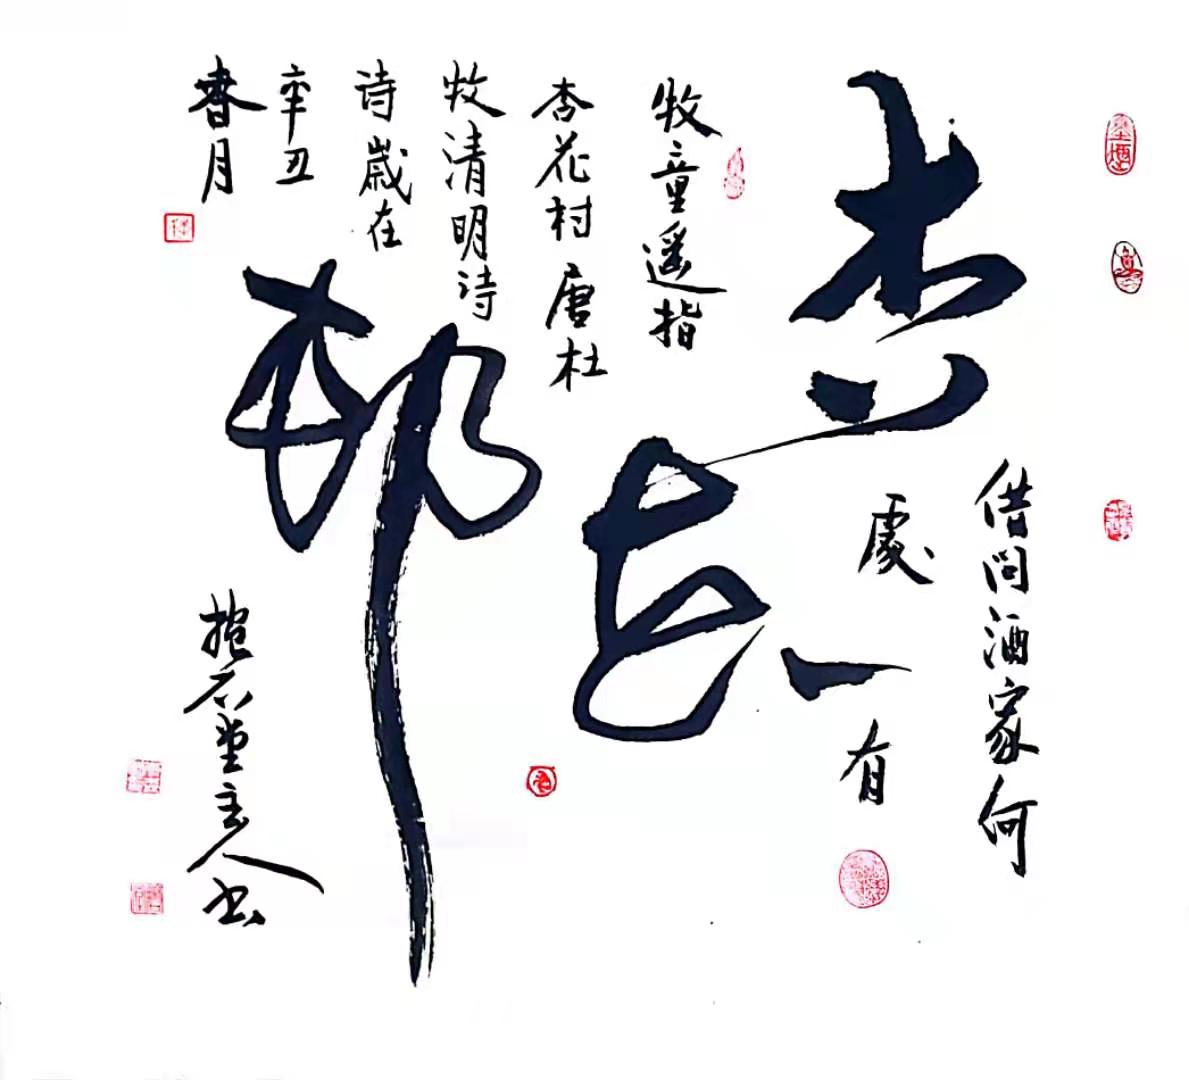 杏花邨
借問酒家何
處有
牧童遥指
杏花村唐杜
牧清明诗
诗歲在
辛丑
春月
抱石堂主人书